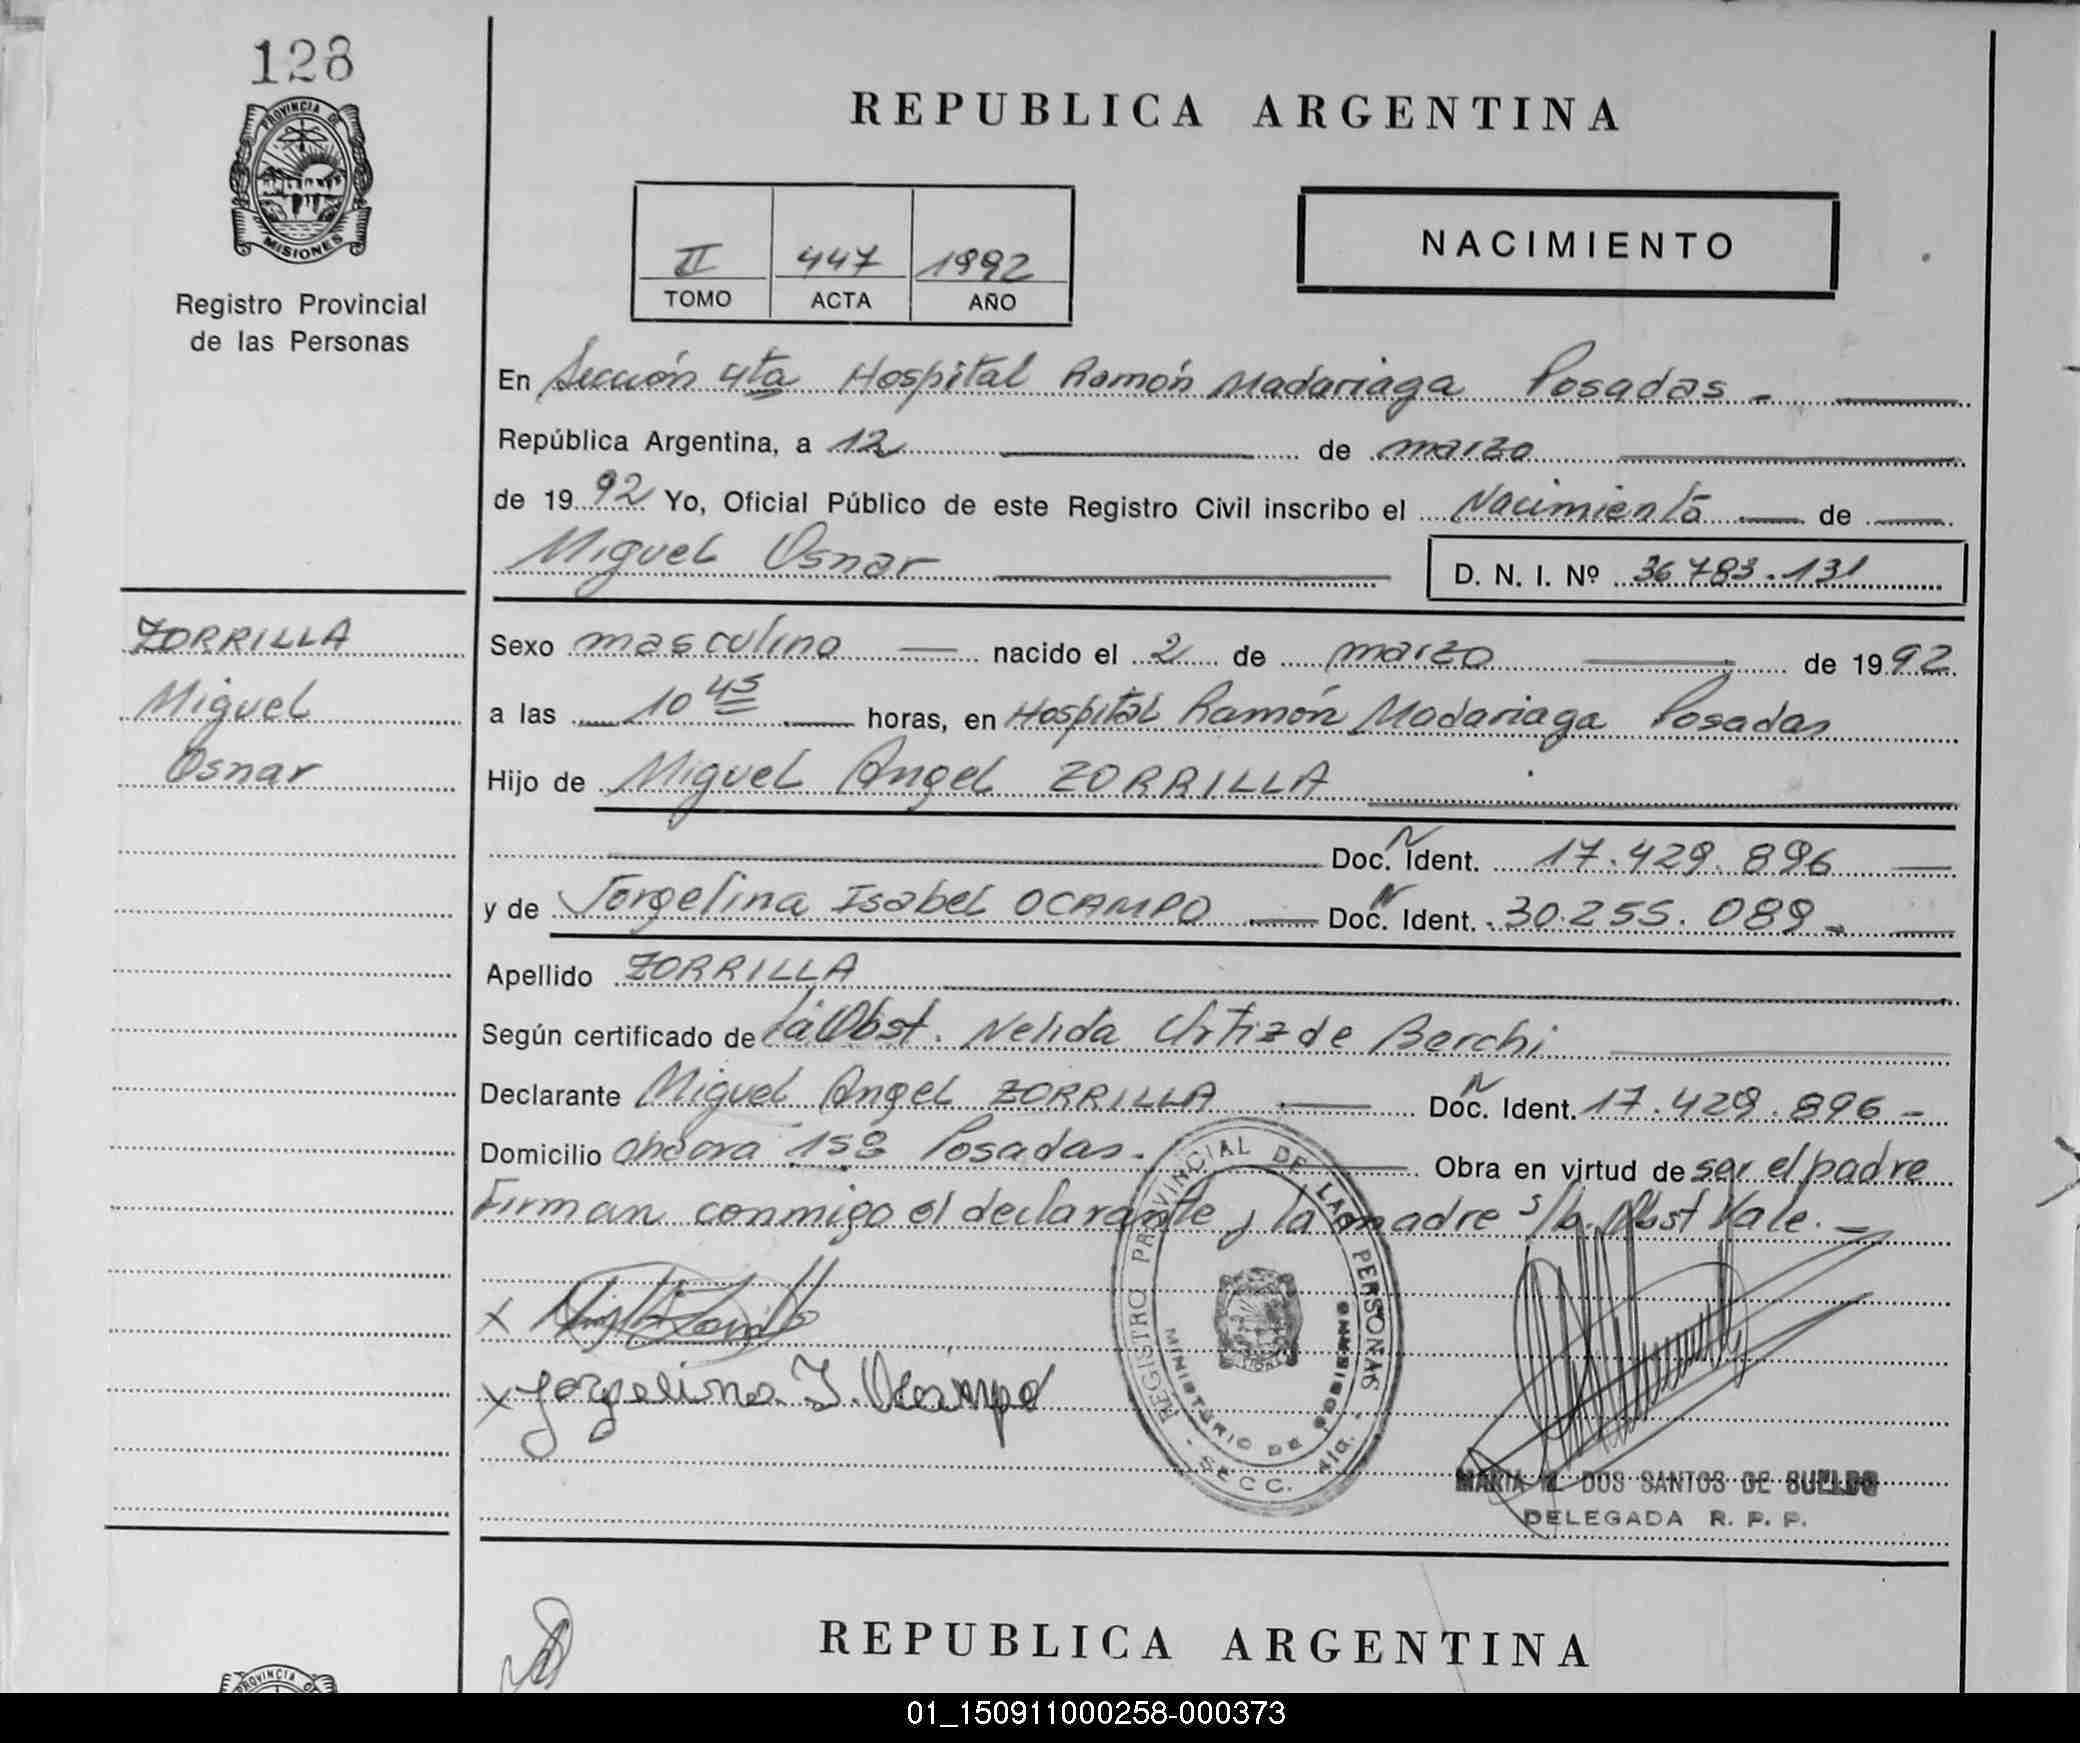 128
PROVINCIA DE
MISIONES
Registro Provincial
de las Personas
REPUBLICA ARGENTINA
II 447 1992
TOMO ACTA AÑO
NACIMIENTO
En Sección 4ta Hospital Ramón Madariaga Posadas -
República Argentina, a 12 de marzo
de 1992 Yo, Oficial Público de este Registro Civil inscribo el Nacimiento de
Miguel Osnar
D. N. I. Nº 36.783.131
ZORRILLA
Miguel
Osnar
Sexo masculino nacido el 2 de marzo de 1992
a las 10 45 horas, en Hospital Ramón Madariaga Posadas
Hijo de Miguel Angel ZORRILLA
Doc. N Ident. 17.429.896
y de Jorgelina Isabel OCAMPO Doc. N Ident. 30.255.089 -
Apellido ZORRILLA
Según certificado de la Obst. Nelida Urtiz de Berchi
Declarante Miguel Angel ZORRILLA Doc. N Ident. 17.429.896 -
Domicilio 158 Posadas. Obra en virtud de ser el padre
Firman conmigo el declarante y la madre s/b. Obst Vale. -
x
x Jorgelina I. Ocampo
REGISTRO PROVINCIAL DE LAS PERSONAS
MINISTERIO DE GOBIERNO
SECC. 4ta.
MARIA DOS SANTOS DE SUELDO
DELEGADA R. P. P.
REPUBLICA ARGENTINA
PROVINCIA
01_150911000258-000373